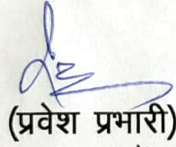 (प्रवेश प्रभारी)